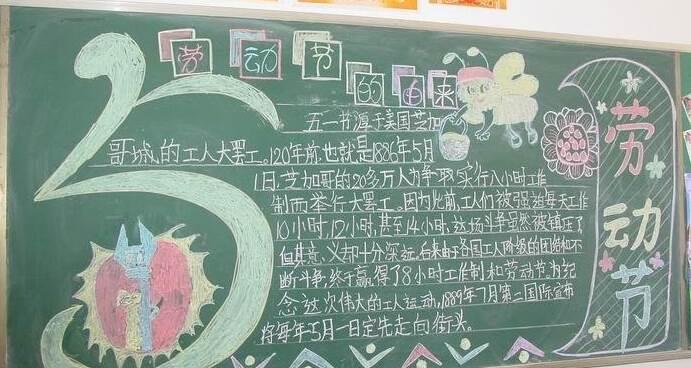 劳动节的由来
五一节源于美国芝加
哥城的工人大罢工。120年前也就是1886年5月
1日,芝加哥的20多万人为争取实行八小时工作
制而举行大罢工。因为此前,工人们被强迫每天工作
10小时,12小时,甚至14小时,这场斗争虽然被镇压了
但其意义却十分深远,后来由于各国工人阶级的团结和不
断斗争,终于赢得了8小时工作制和劳动节,为纪
念这次伟大的工人运动,1889年7月第二国际宣布
将每年5月一日定先走向街头。
5
劳动节